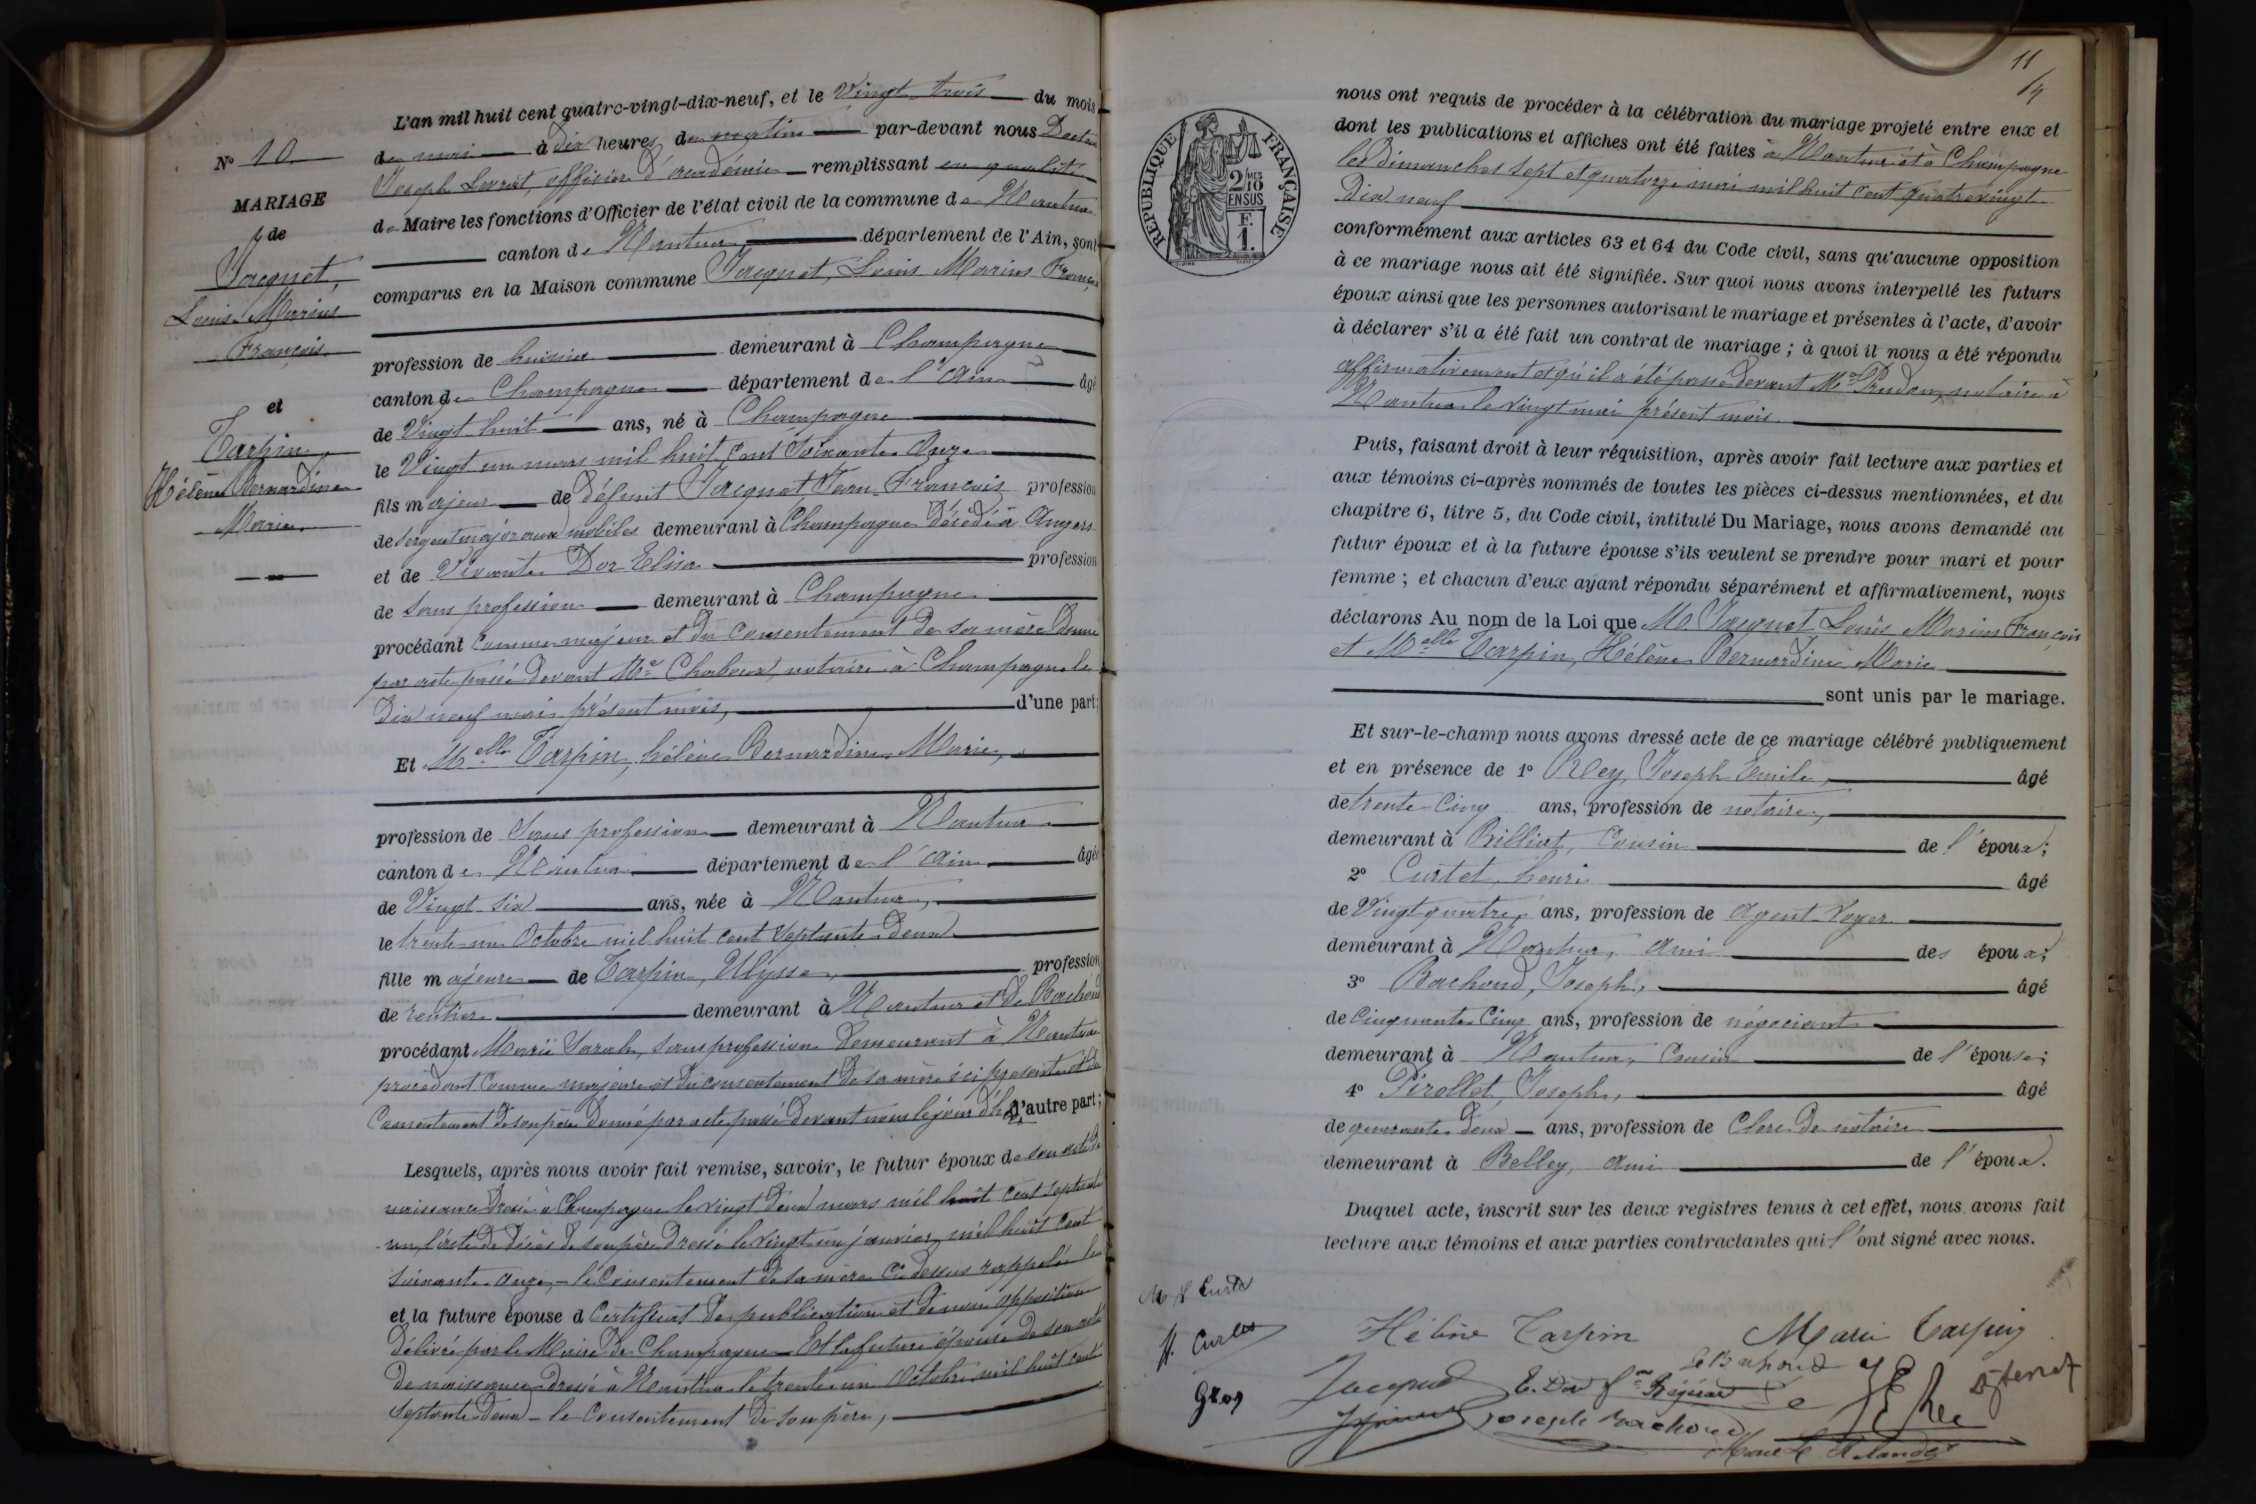 N° 10
MARIAGE
de
Jacquet,
Louis Marius
François
et
Tarpin
Hélène Bernardine
Marie
L'an mil huit cent quatre-vingt-dix-neuf, et le Vingt trois du mois
de mai à dix heures du matin par-devant nous Docteur
Joseph, officier d'académie remplissant en qualité
de Maire les fonctions d'Officier de l'état civil de la commune de Nantua
canton de Nantua, département de l'Ain, sont
comparus en la Maison commune Jacquet, Louis Marius François
profession de huissier demeurant à Champagne
canton de Champagne département de l'Ain âgé
de Vingt huit ans, né à Champagne
le Vingt un mars mil huit cent soixante onze
fils majeur de défunt Jacquet Jean François profession
de sergent major aux mobiles demeurant à Champagne décédé à Angers
et de Vivante Dor Elisa profession
de sans profession demeurant à Champagne
procédant comme majeur et du consentement de sa mère donné
par acte passé devant Me Chaboux, notaire à Champagne le
dix neuf mai présent mois, d'une part;
Et Melle Tarpin, hélène Bernardine Marie,
profession de Sans profession demeurant à Nantua
canton de Nantua département de l'Ain âgée
de Vingt six ans, née à Nantua,
le trente un Octobre mil huit cent septante deux
fille majeure de Tarpin, Ulysse, profession
de rentier demeurant à Nantua et de Bachoud
procédant Marie Sarah, sans profession demeurant à Nantua
procédant comme majeure et du consentement de sa mère ici présente et du
consentement de son père donné par acte passé devant nous le jour d'hier d'autre part;
Lesquels, après nous avoir fait remise, savoir, le futur époux de son acte de
naissance dressé à Champagne le vingt deux mars mil huit cent septante
un, l'acte de décès de son père dressé le vingt un janvier mil huit cent
soixante onze, - le consentement de sa mère ci dessus rappelé le
et la future épouse d Certificat de publication et de non opposition
délivré par le Maire de Champagne Et la future épouse de son acte
de naissance dressé à Nantua le trente un Octobre mil huit cent
septante deux - le consentement de son père,
11
14
REPUBLIQUE FRANÇAISE
2/10
EN SUS
F.
1.
nous ont requis de procéder à la célébration du mariage projeté entre eux et
dont les publications et affiches ont été faites à Nantua et à Champagne
les dimanches sept et quatorze mai mil huit cent quatre vingt
dix neuf
conformément aux articles 63 et 64 du Code civil, sans qu'aucune opposition
à ce mariage nous ait été signifiée. Sur quoi nous avons interpellé les futurs
époux ainsi que les personnes autorisant le mariage et présentes à l'acte, d'avoir
à déclarer s'il a été fait un contrat de mariage ; à quoi il nous a été répondu
affirmativement et qu'il a été passé devant Me Prudon, notaire à
Nantua le vingt mai présent mois.
Puis, faisant droit à leur réquisition, après avoir fait lecture aux parties et
aux témoins ci-après nommés de toutes les pièces ci-dessus mentionnées, et du
chapitre 6, titre 5, du Code civil, intitulé Du Mariage, nous avons demandé au
futur époux et à la future épouse s'ils veulent se prendre pour mari et pour
femme ; et chacun d'eux ayant répondu séparément et affirmativement, nous
déclarons Au nom de la Loi que Mr Jacquet Louis Marius François
et Melle Tarpin, Hélène Bernardine Marie
sont unis par le mariage.
Et sur-le-champ nous avons dressé acte de ce mariage célébré publiquement
et en présence de 1° Rey, Joseph Emile, âgé
de trente cinq ans, profession de notaire,
demeurant à Billiat, Cousin de l'époux;
2° Curtet, henri âgé
de Vingt quatre, ans, profession de Agent Voyer
demeurant à Nantua, Ami des époux;
3° Bachoud, Joseph, âgé
de Cinquante Cinq ans, profession de négociant
demeurant à Nantua, Cousin de l'épouse;
4° Pirollet, Joseph, âgé
de quarante deux ans, profession de Clerc de notaire
demeurant à Belley, Ami de l'époux.
Duquel acte, inscrit sur les deux registres tenus à cet effet, nous avons fait
lecture aux témoins et aux parties contractantes qui l'ont signé avec nous.
Hélène Tarpin Marie Tarpin
Jacquet
Joseph Bachoud